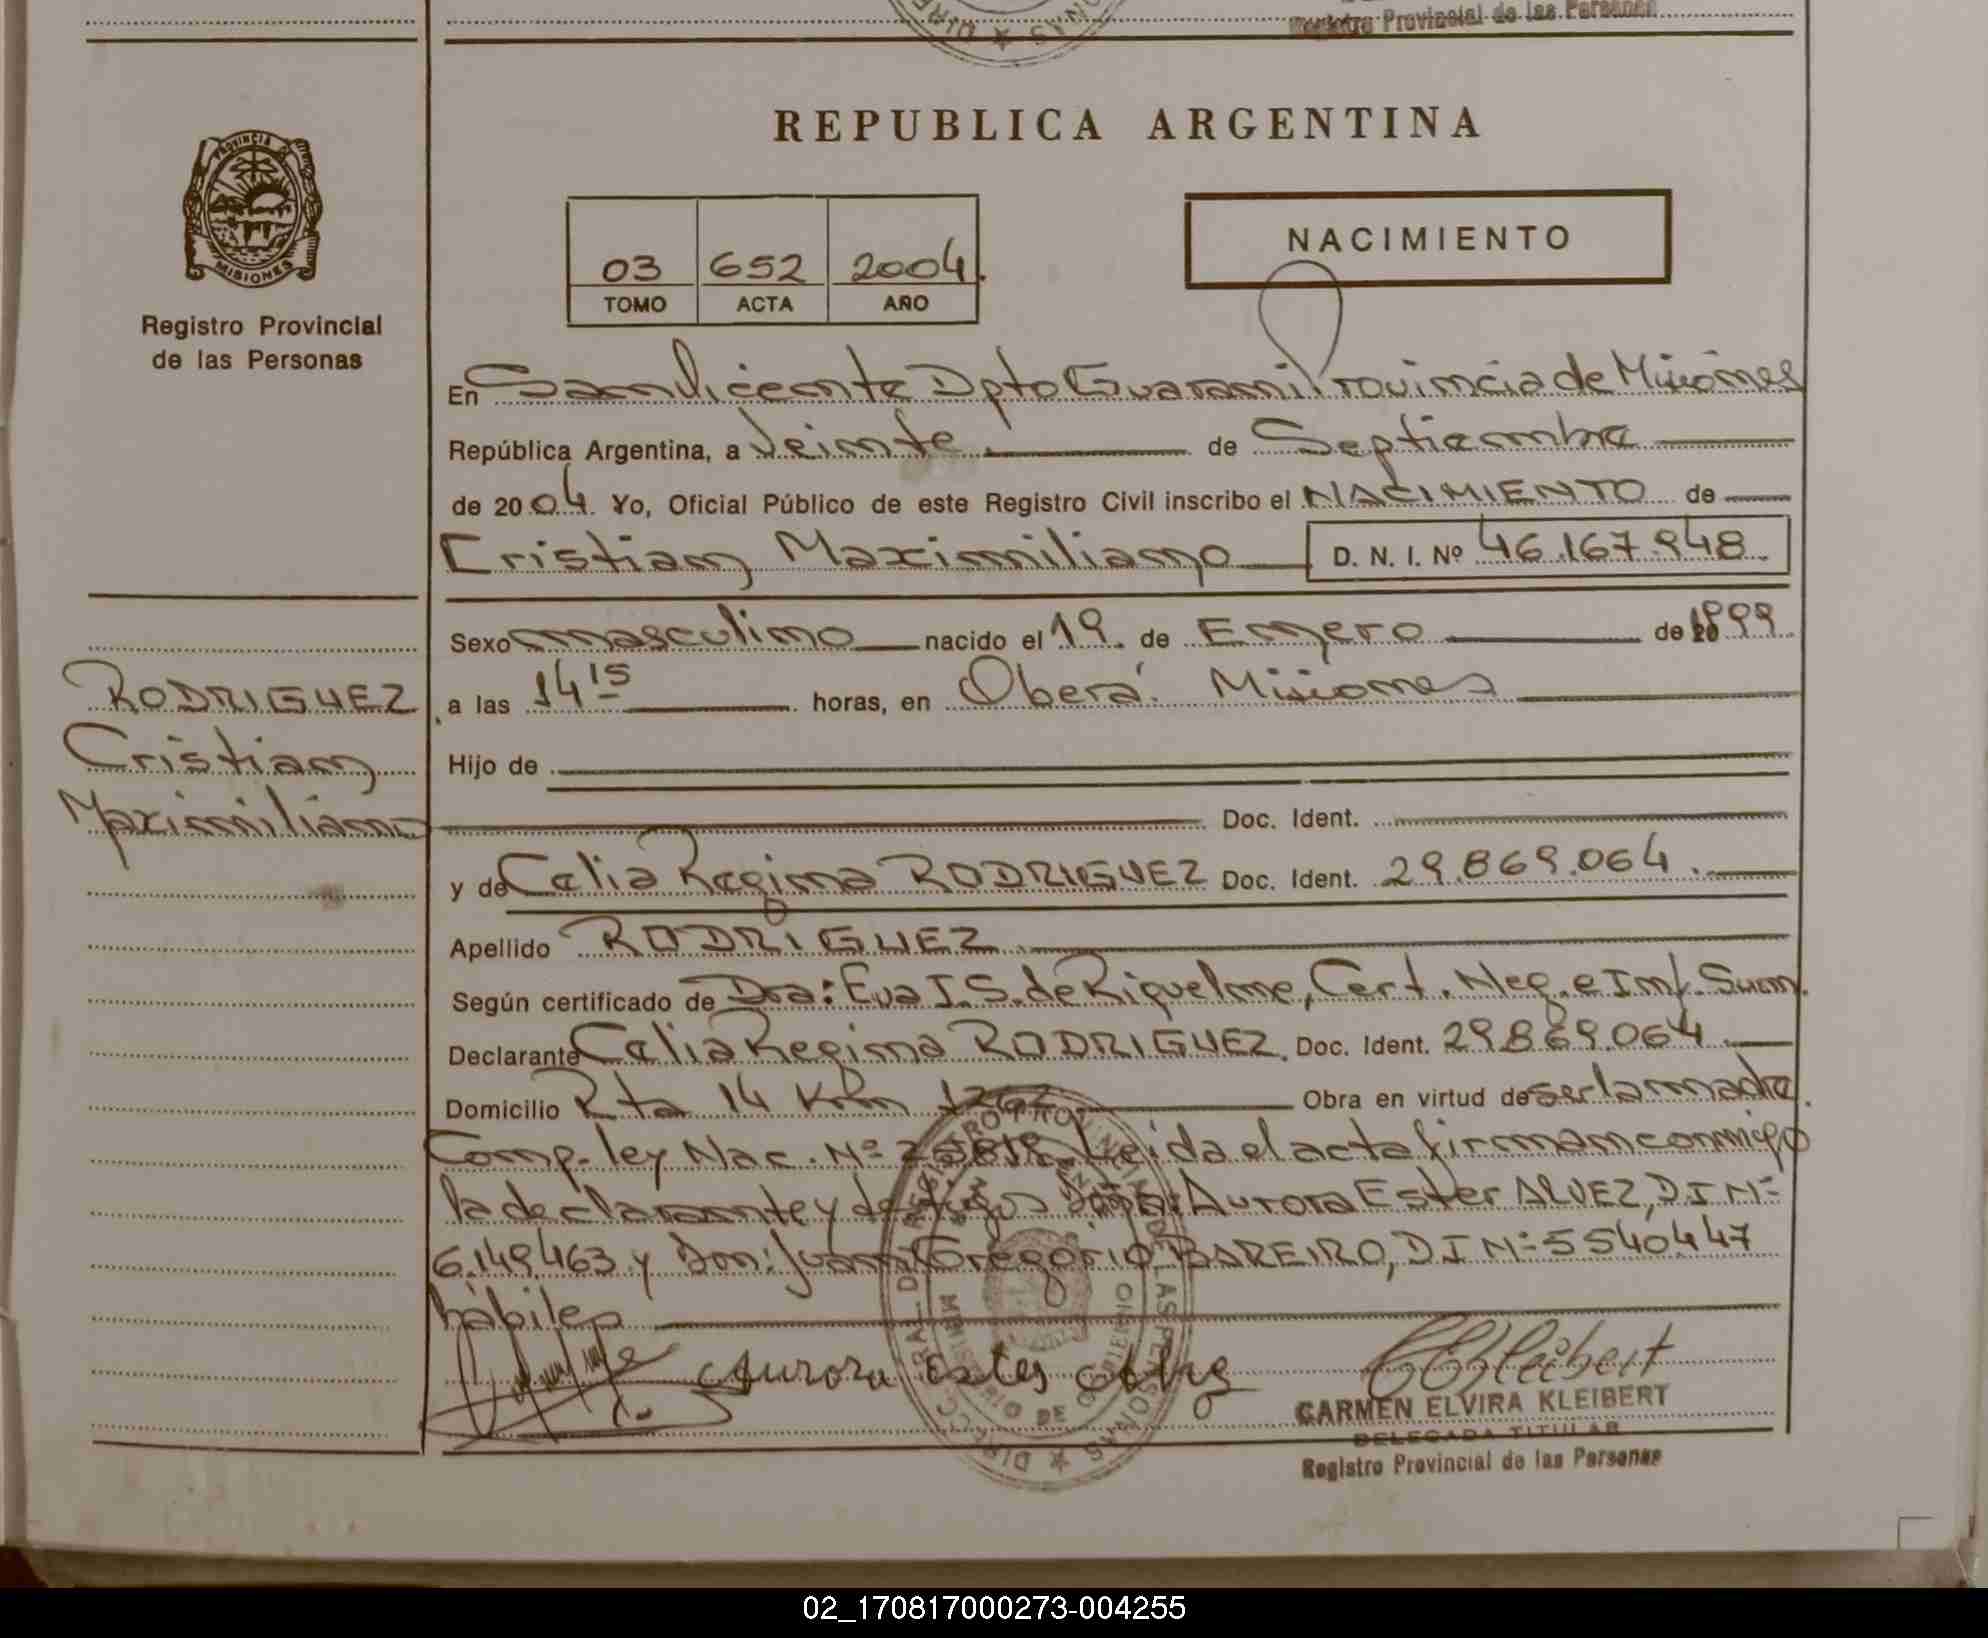 Registro Provincial de las Personas
REPUBLICA ARGENTINA
PROVINCIA DE
MISIONES
Registro Provincial
de las Personas
03 652 2004.
TOMO ACTA AÑO
NACIMIENTO
En San Vicente Dpto Guarani Provincia de Misiones
República Argentina, a Veinte de Septiembre
de 2004. Yo, Oficial Público de este Registro Civil inscribo el NACIMIENTO de
Cristian Maximiliano D. N. I. Nº 46.167.948.
Sexo masculino nacido el 19. de Enero de 1999.
RODRIGUEZ
Cristian
Maximiliano
a las 14 15 horas, en Oberá. Misiones
Hijo de
Doc. Ident.
y de Celia Regina RODRIGUEZ Doc. Ident. 29.869.064.
Apellido RODRIGUEZ
Según certificado de Dra: Eva I. S. de Riquelme, Cert. Neg. e Inf. Sum.
Declarante Celia Regina RODRIGUEZ. Doc. Ident. 29.869.064
Domicilio Rta 14 Km Obra en virtud de ser la madre.
Comp. ley Nac. Nº Leida el acta firman conmigo
la declarante y de Aurora Ester ALVEZ, D I Nº
6.149.463 y Don: Juan Gregorio BAREIRO, D I Nº 5540447
hábiles
Aurora Ester
CKleibert
CARMEN ELVIRA KLEIBERT
DELEGADA TITULAR
Registro Provincial de las Personas
02_170817000273-004255